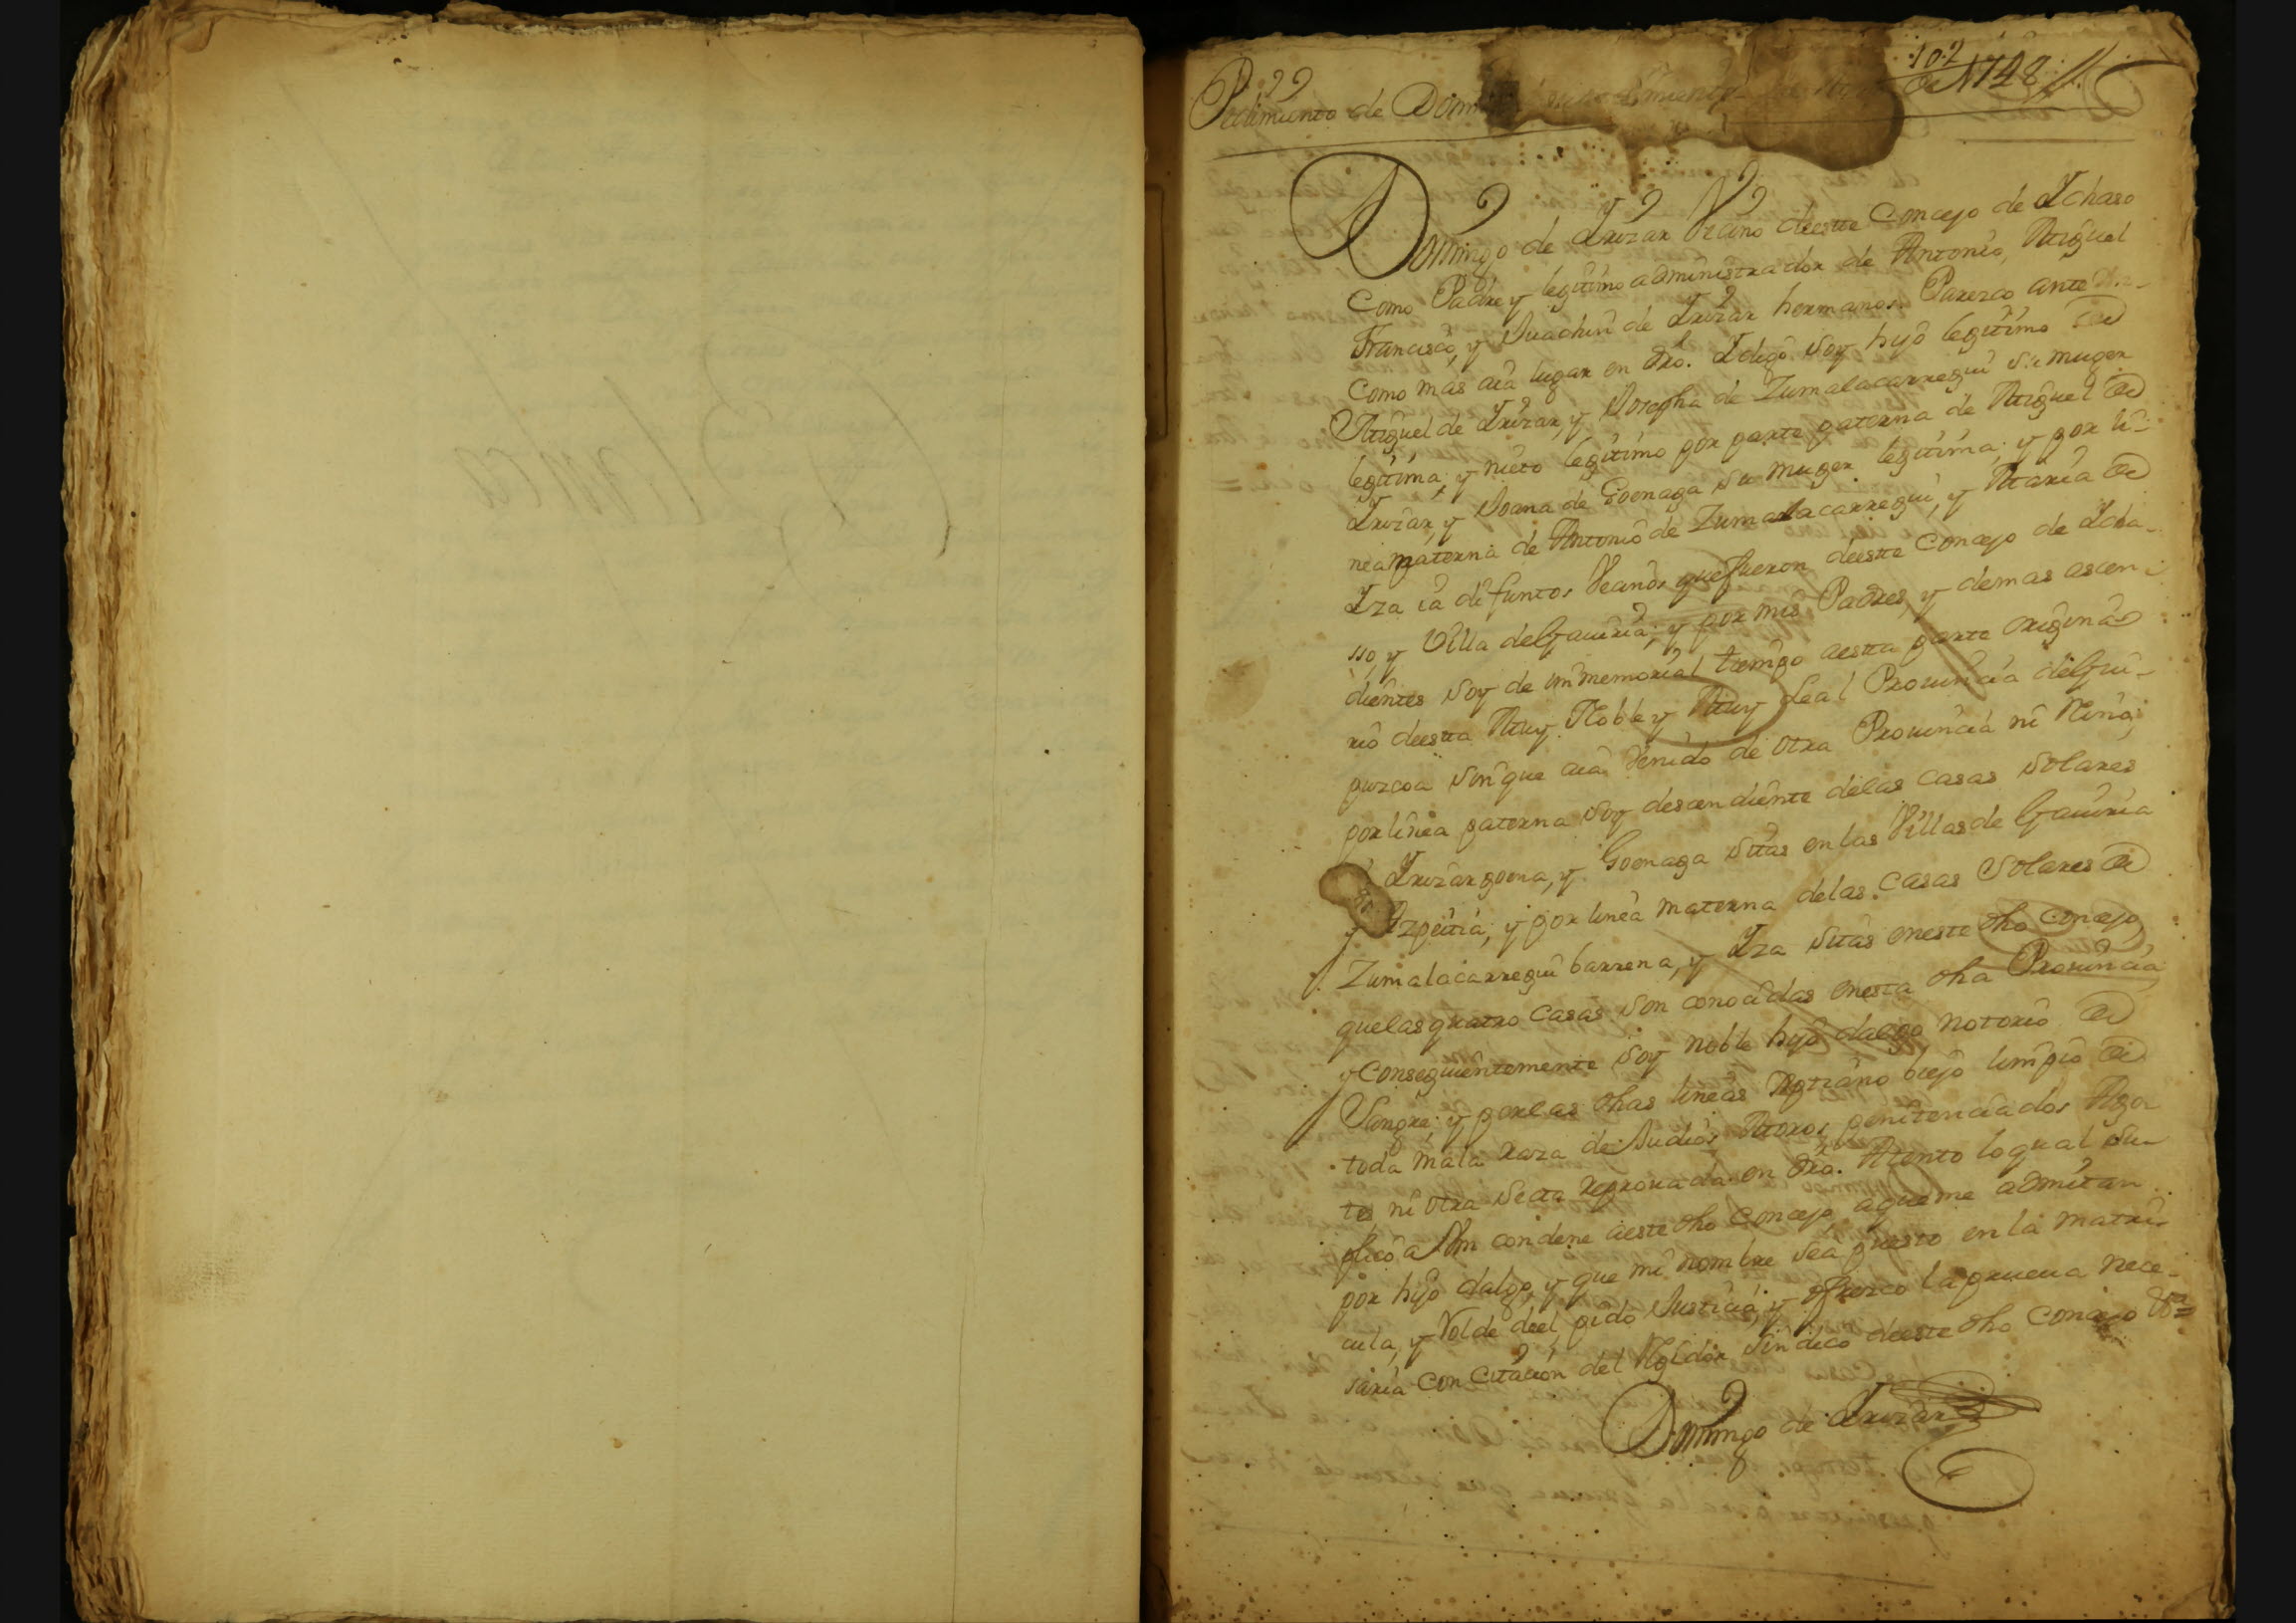 102
Pedimento de Domi de 1748
Domingo de Yrizar Vecino deeste Concejo de Ychaso
Como Padre y legitimo administrador de Antonio, Miguel
Francisco, y Juachin de Yrizar hermanos. Parezco ante
Como mas aia lugar en dro. Y digo soy hijo legitimo de
Miguel de Yrizar, y Josepha de Zumalacarregui su muger
legitima; y nieto legitimo por parte paterna de Miguel de
Yrizar, y Joana de Goenaga su muger legitima; y por li-
nea materna de Antonio de Zumalacarregui, y Maria de
Yza ia difuntos Vecinos que fueron deeste Concejo de Icha-
sso, y Villa de Gauiria; y por mis Padres, y demas ascen-
dientes soy de immemorial tiempo aesta parte origina-
rio deesta Muy Noble y Muy Leal Prouincia de Gui-
puzcoa sin que aia Venido de otra Prouincia ni Reino;
por linea paterna soy descendiente delas Casas Solares
Yrizargoena, y Goenaga sitas en las Villas de Gauiria
y Azpeitia; y por linea materna delas Casas Solares de
Zumalacarregui barrena, y Yza sitas eneste dho Concejo
quelas quatro Casas son conocidas enesta dha Prouincia
y Consequientemente soy noble hijo dalgo notorio de
Sangre; y por las dhas lineas Xptiano biejo limpio de
toda mala raza de Judios, Moros, penitenciados Ago-
tes ni otra Secta reprouada en dro. Atento loqual Su-
plico a Vm condene aeste dho Concejo aque me admitan
por hijo dalgo, y que mi nombre sea puesto en la matri-
cula, y Rolde deel pido Justicia, y ofrezco la prueua nece-
saria Con Citacion del Rejidor Sindico deeste dho Concejo
Domingo de Yrizar